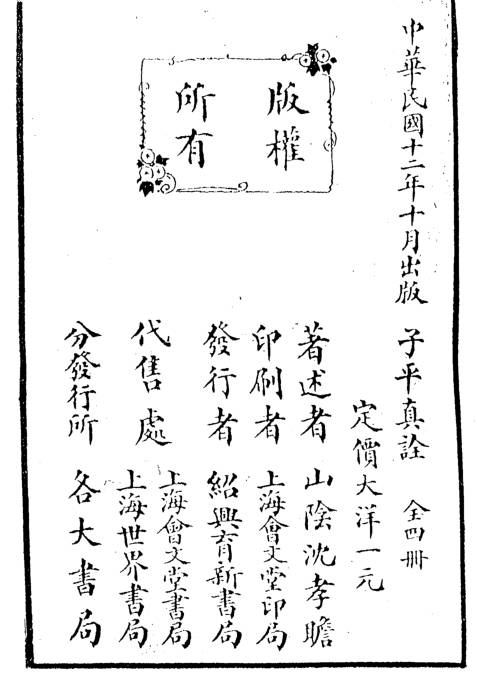 中華民國十二年十月出版
子平真詮 全四冊
定價大洋一元
版權
所有
著述者 山陰沈孝瞻
印刷者 上海會文堂印局
發行者 紹興育新書局
代售處 上海會文堂書局
上海世界書局
分發行所 各大書局